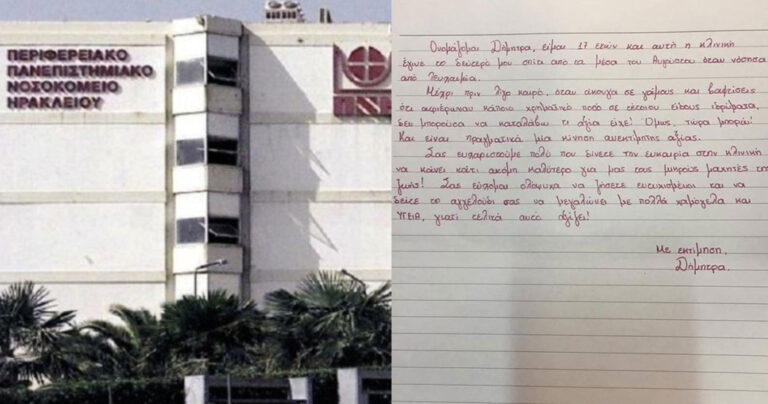 ΠΕΡΙΦΕΡΕΙΑΚΟ
ΠΑΝΕΠΙΣΤΗΜΙΑΚΟ
ΝΟΣΟΚΟΜΕΙΟ
ΗΡΑΚΛΕΙΟΥ
Ονομάζομαι Δήμητρα, είμαι 17 ετών και αυτή η κλινική
έγινε το δεύτερό μου σπίτι από τα μέσα του Αυγούστου όταν νόσησα
από λευχαιμία.
Μέχρι πριν λίγο καιρό, όταν άκουγα σε γάμους και βαφτίσεις
ότι αφιέρωναν κάποιο χρηματικό ποσό σε τέτοιου είδους ιδρύματα,
δεν μπορούσα να καταλάβω τι αξία είχε! Όμως, τώρα μπορώ!
Και είναι πραγματικά μία κίνηση ανεκτίμητης αξίας.
Σας ευχαριστούμε πολύ που δίνετε την ευκαιρία στην κλινική
να κάνει κάτι ακόμη καλύτερο για μας τους μικρούς μαχητές της
ζωής! Σας εύχομαι ολόψυχα να ζήσετε ευτυχισμένοι και να
δείτε το αγγελούδι σας να μεγαλώνει με πολλά χαμόγελα και
ΥΓΕΙΑ, γιατί τελικά αυτό αξίζει!
Με εκτίμηση,
Δήμητρα.